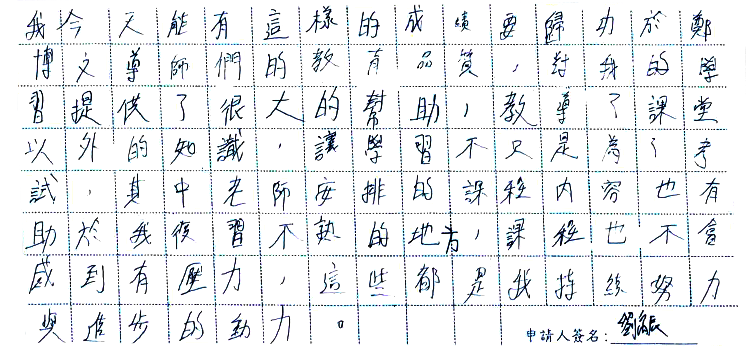 我今天能有這樣的成績要歸功於鄭
博文導師們的教育品質，對我的學
習提供了很大的幫助，教導了課堂
以外的知識，讓學習不只是為了考
試，其中老師安排的課程內容也有
助於我復習不熟的地方，課程也不會
感到有壓力，這些都是我持續努力
與進步的動力。
申請人簽名：劉